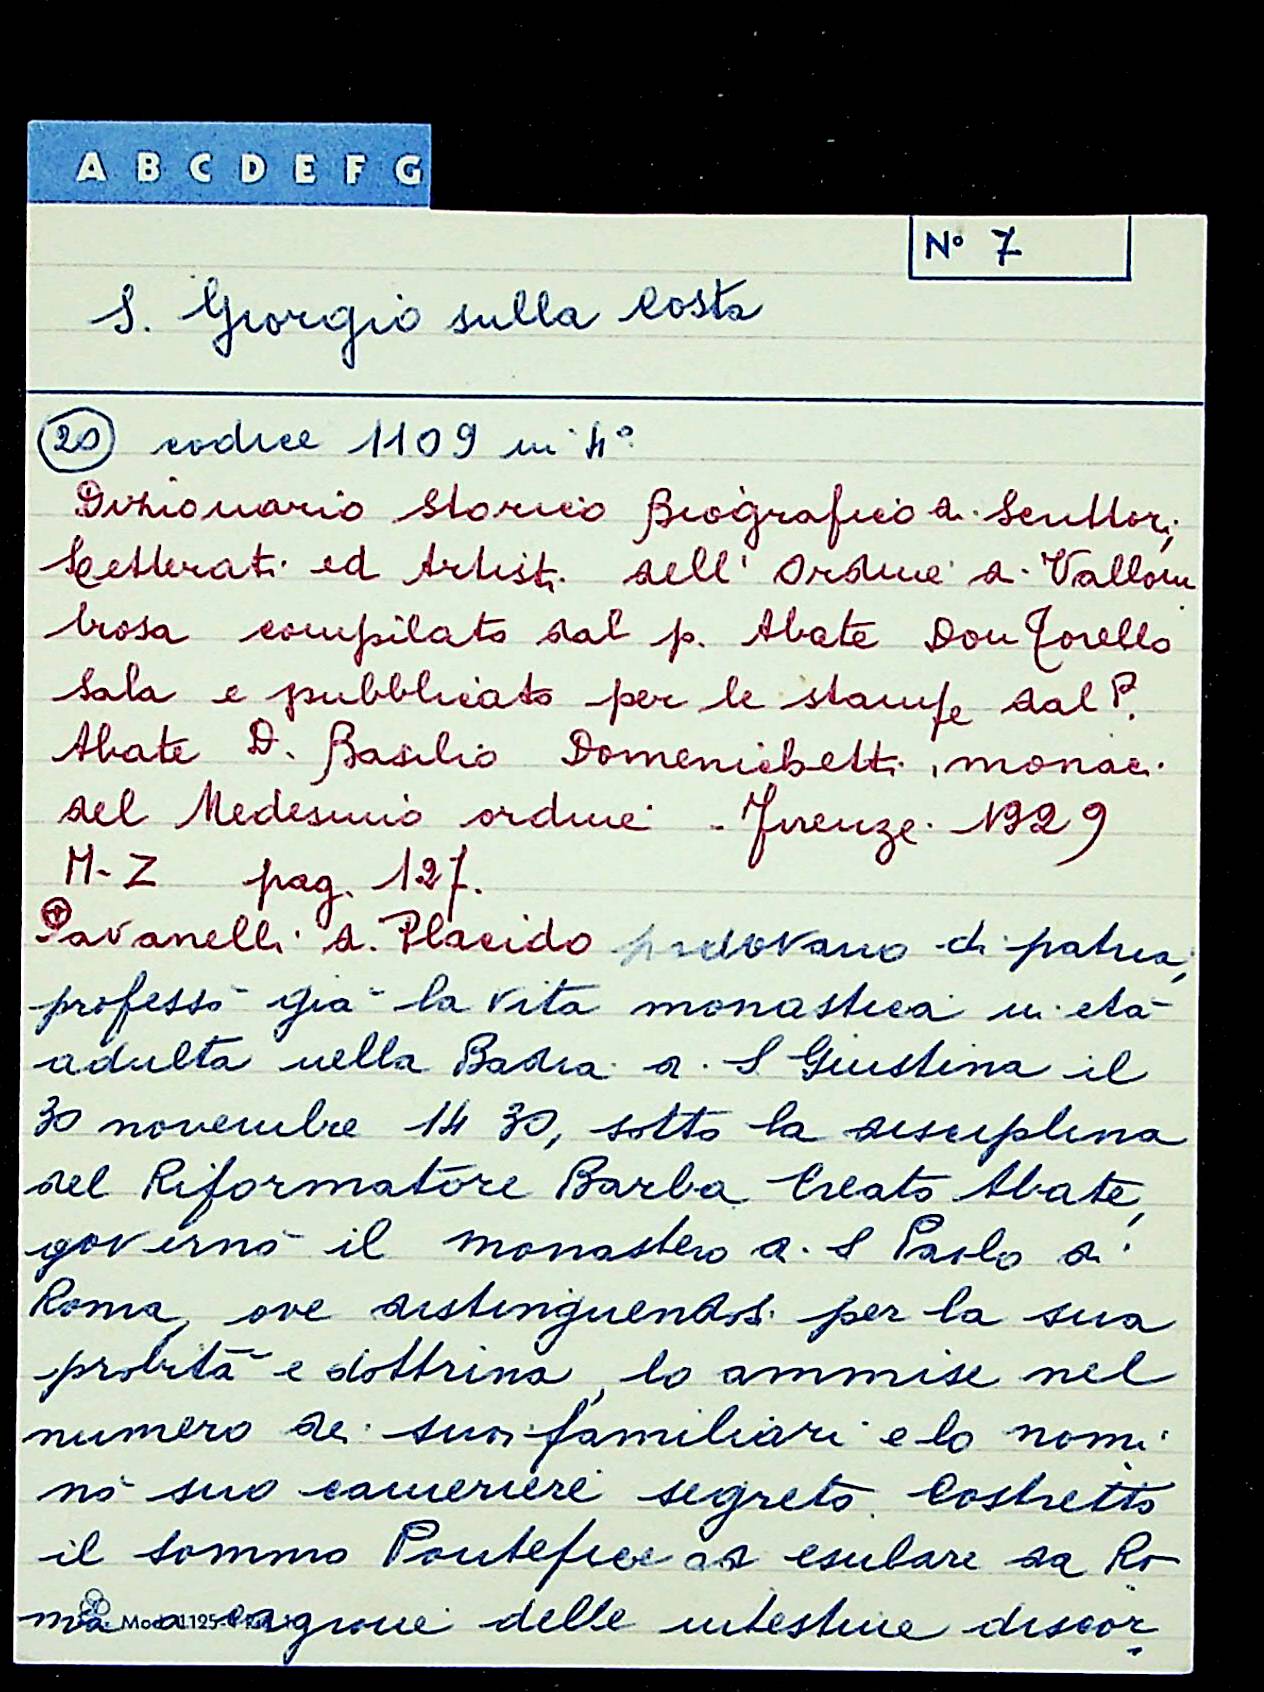 A B C D E F G
N° 7
S. Giorgio sulla Costa
20 codice 1109 in 4°
Dizionario Storico Biografico di Scrittori,
Letterati ed Artisti dell'Ordine di Vallom
brosa compilato dal p. Abate Don Torello
Sala e pubblicato per le stampe dal P.
Abate D. Basilio Domenichetti, monaci
del Medesimo ordine - Firenze - 1929
M-Z pag. 127.
Pavanelli d. Placido padovano di patria,
professò già la vita monastica in età
adulta nella Badia di S Giustina il
30 novembre 1430, sotto la disciplina
del Riformatore Barba Creato Abate,
governò il monastero di S Paolo di
Roma, ove distinguendosi per la sua
probità e dottrina, lo ammise nel
numero dei suoi familiari e lo nomi
nò suo cameriere segreto. Costretto
il sommo Pontefice ad esulare da Ro-
ma a cagione delle intestine discor
Mod. 1125